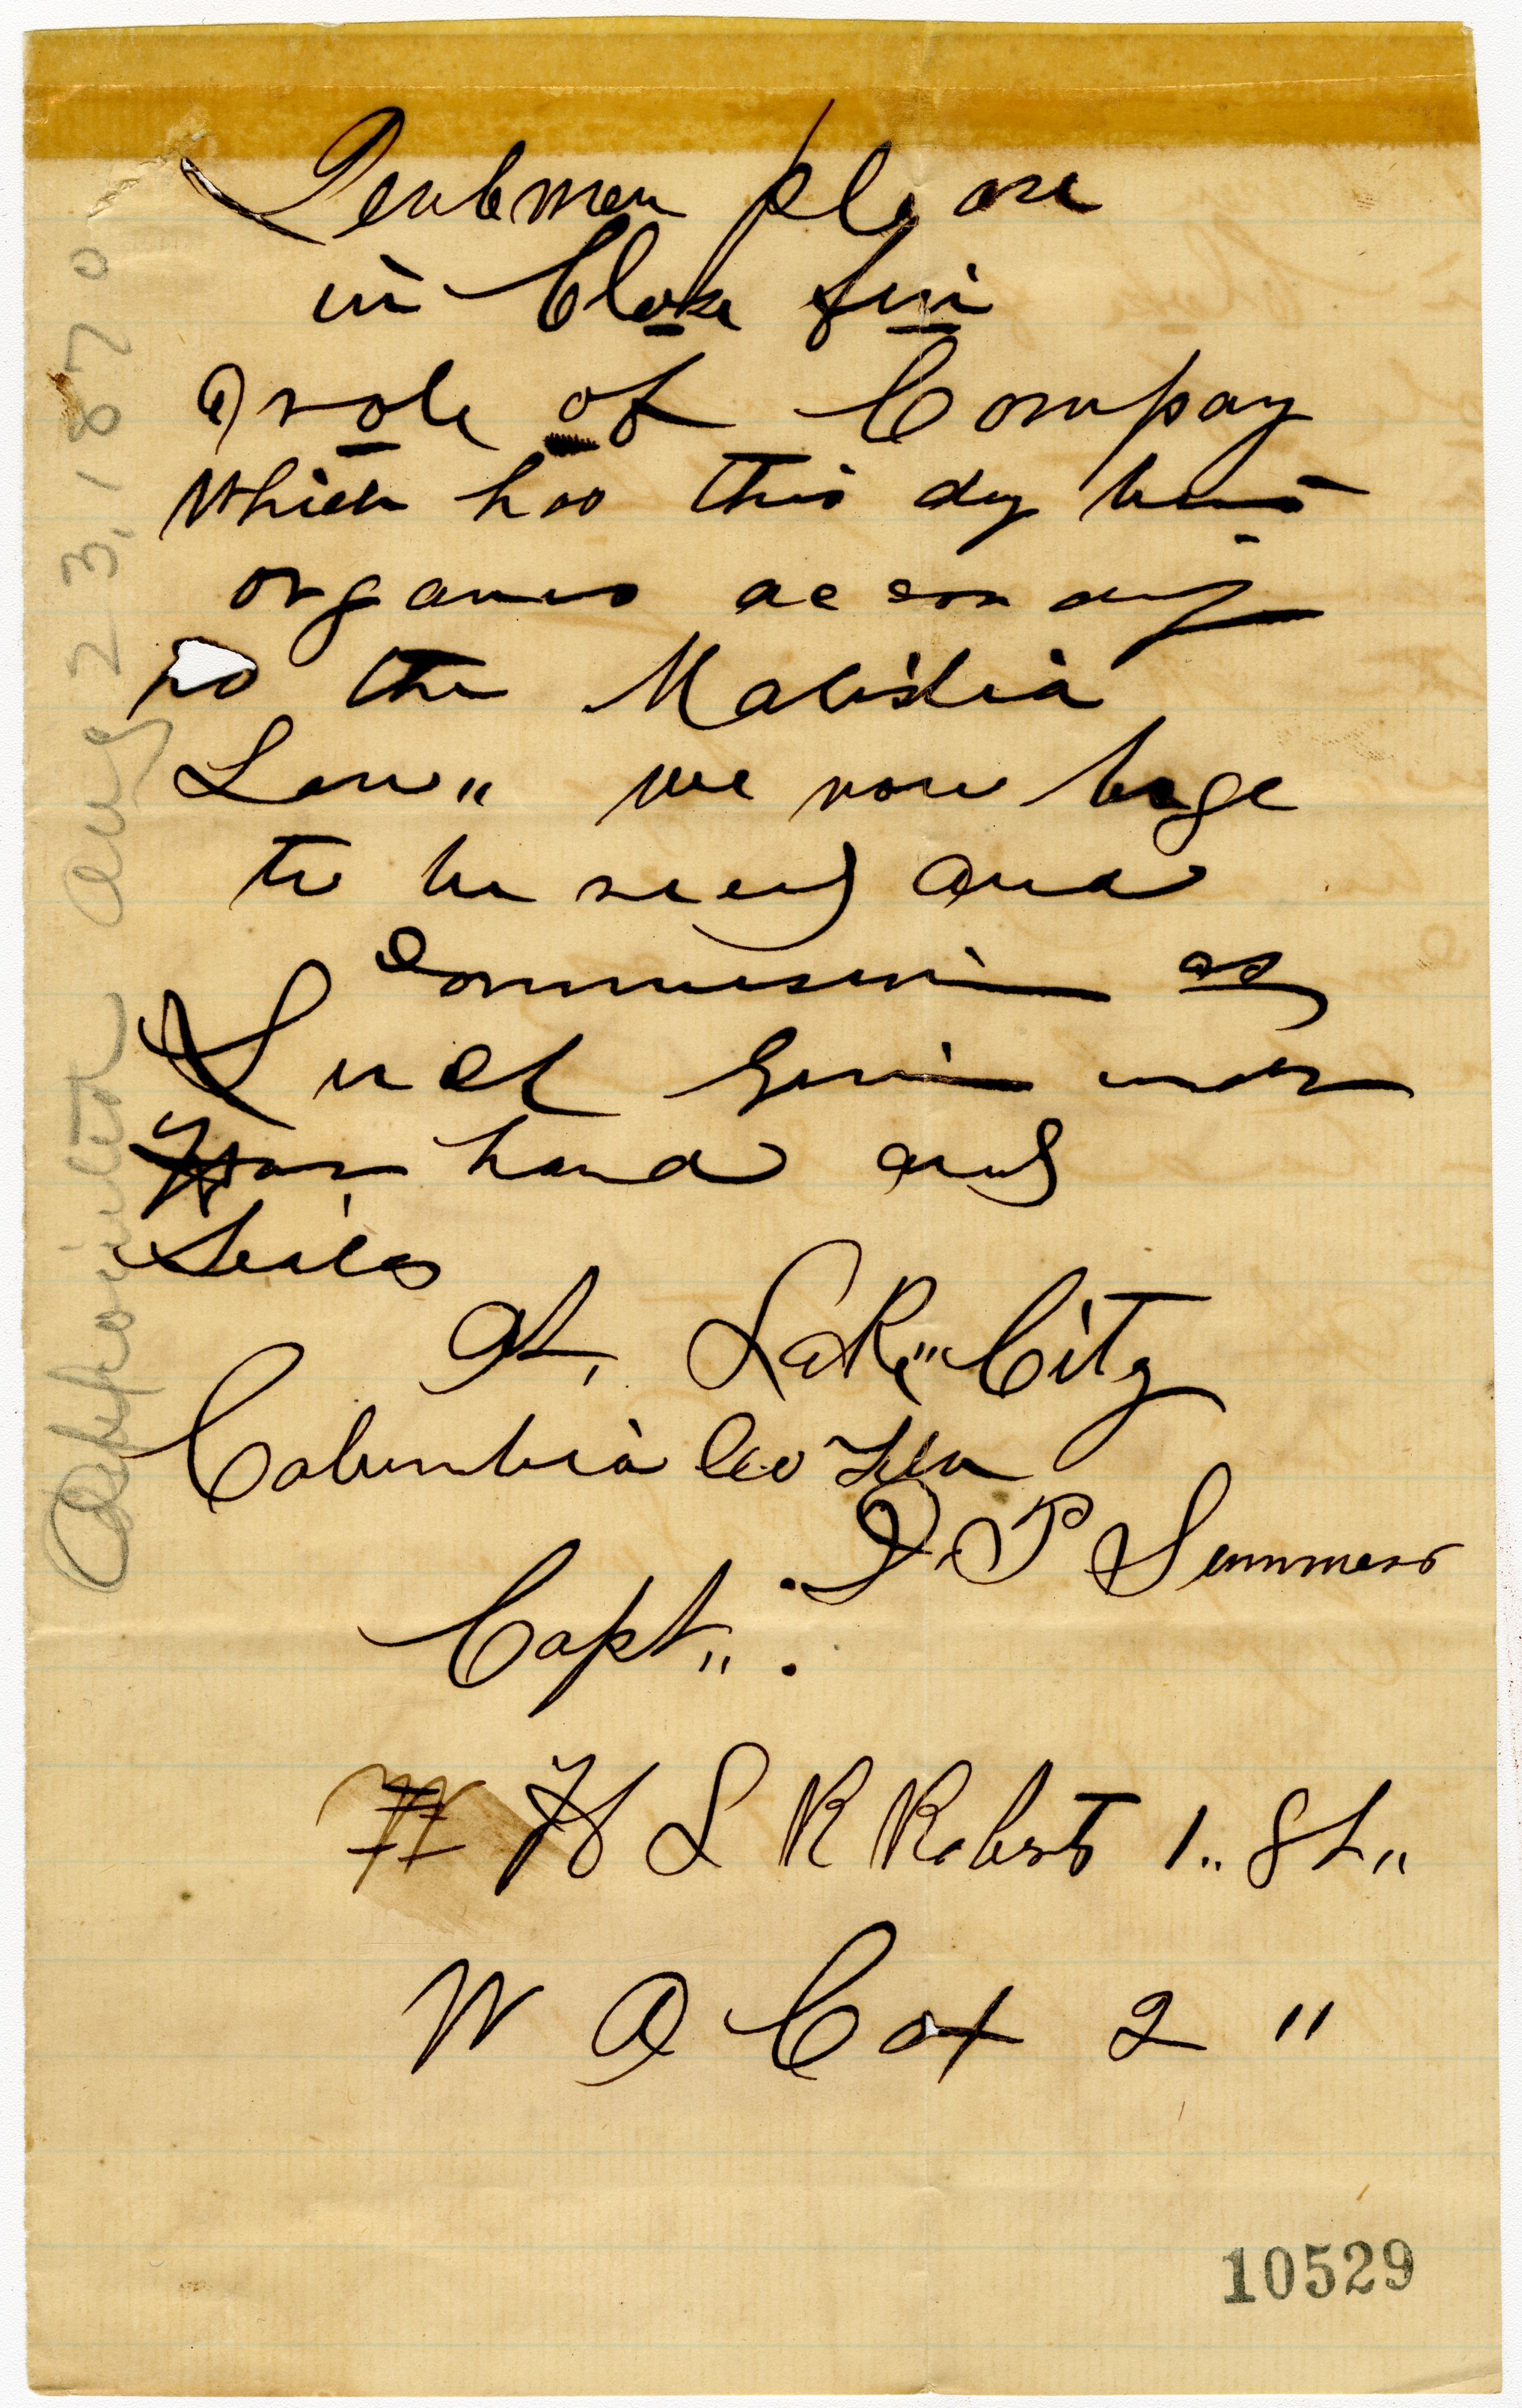 Gentlemen please
in Close find
a role of Company
which has this day been
organised according
to the Malistia
Law" we now bege
to be receved and
commission as
Such Given under
our hand and
Seales
At, Lake" City
Columbia Co Fla
P Summers
Capt".
H L R Roberts 1" St"
W A Cox 2 "
Appointed Aug 23, 1870
10529